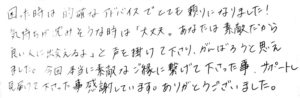 困った時は的確なアドバイスでとても頼りになりました！
気持ちが沈みそうな時は「大丈夫。あなたは素敵だから
良い人に出会えるよ」と声を掛けて下さり、がんばろうと思え
ました。今回本当に素敵なご縁に繋げて下さった事、サポートし
見届けて下さった事感謝しています。ありがとうございました。